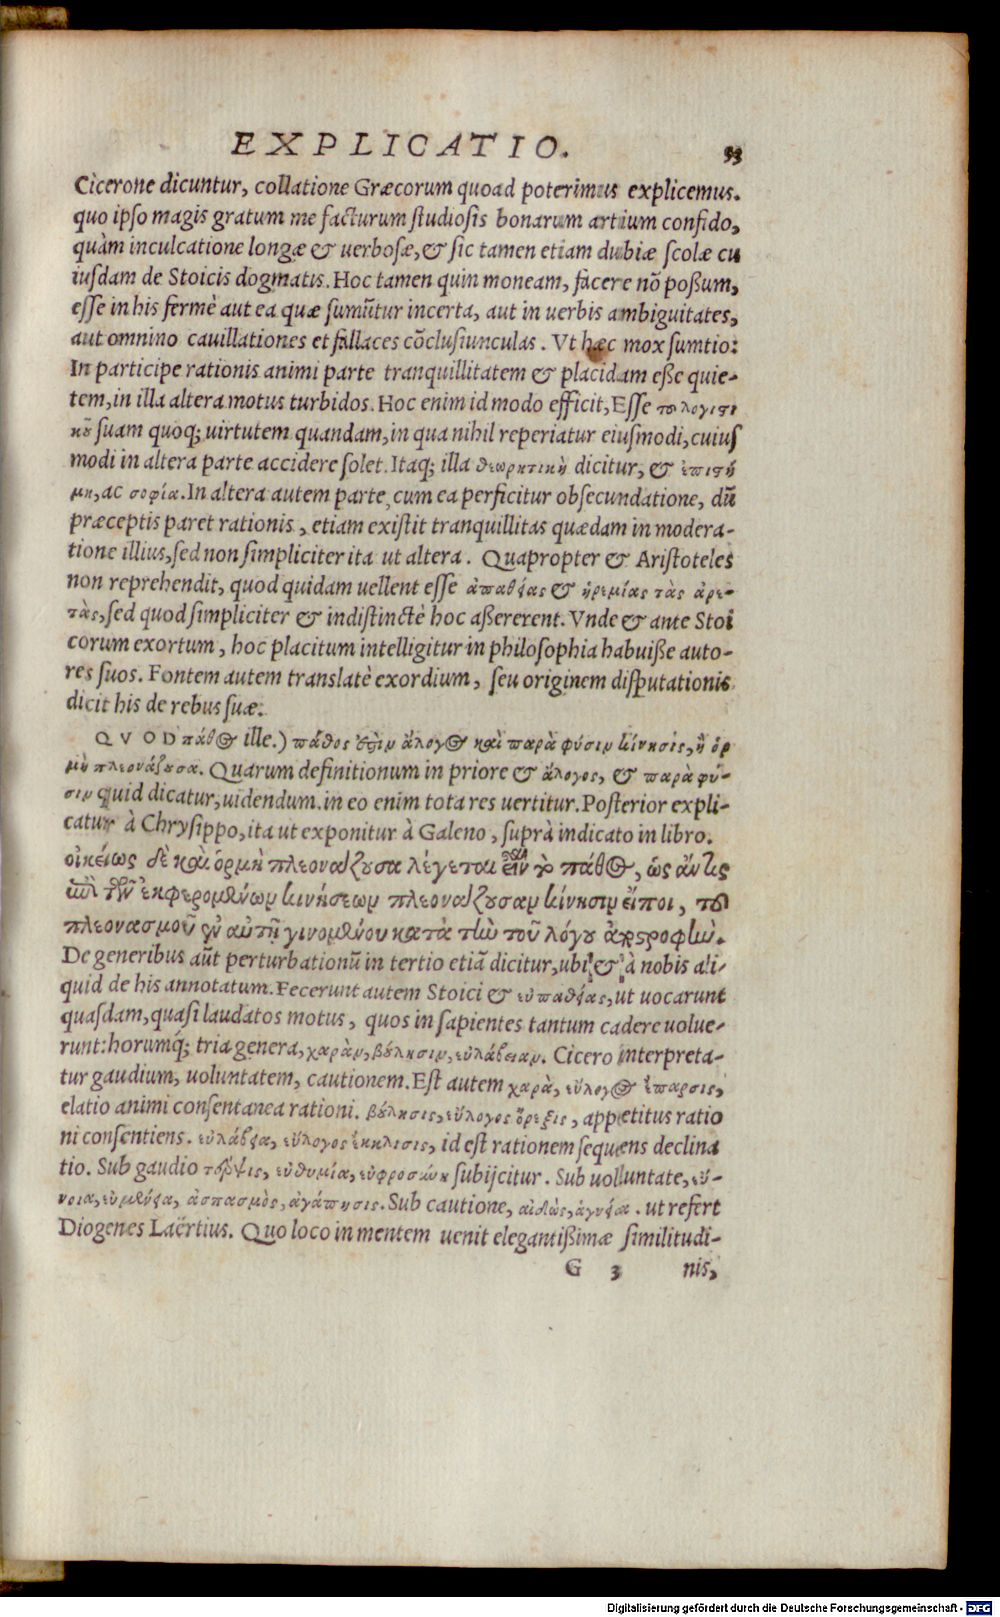 EXPLICATIO. 53
Cicerone dicuntur, collatione Græcorum quoad poterimus explicemus.
quo ipso magis gratum me facturum studiosis bonarum artium confido,
quàm inculcatione longæ & uerbosæ, & sic tamen etiam dubiæ scolæ cu
iusdam de Stoicis dogmatis. Hoc tamen quin moneam, facere nō possum,
esse in his fermè aut ea quæ sumūtur incerta, aut in uerbis ambiguitates,
aut omnino cauillationes et fallaces cōclusiunculas. Vt hæc mox sumtio:
In participe rationis animi parte tranquillitatem & placidam esse quie-
tem, in illa altera motus turbidos. Hoc enim id modo efficit, Esse τοῦ λογιστι
κοῦ suam quoq; uirtutem quandam, in qua nihil reperiatur eiusmodi, cuius
modi in altera parte accidere solet. Itaq; illa θεωρητικὴ dicitur, & ἐπιστή
μη, ac σοφία. In altera autem parte, cum ea perficitur obsecundatione, dū
præceptis paret rationis, etiam existit tranquillitas quædam in modera-
tione illius, sed non simpliciter ita ut altera. Quapropter & Aristoteles
non reprehendit, quod quidam uellent esse ἀπαθείας & ἠρεμίας τὰς ἀρε-
τὰς, sed quod simpliciter & indistinctè hoc assererent. Vnde & ante Stoi
corum exortum, hoc placitum intelligitur in philosophia habuisse auto-
res suos. Fontem autem translatè exordium, seu originem disputationis
dicit his de rebus suæ.
QVOD πάθος ille.) πάθος ἐστὶν ἄλογος καὶ παρὰ φύσιν κίνησις, ἢ ὁρ
μὴ πλεονάζουσα. Quarum definitionum in priore & ἄλογος, & παρὰ φύ-
σιν quid dicatur, uidendum. in eo enim tota res uertitur. Posterior expli-
catur à Chrysippo, ita ut exponitur à Galeno, suprà indicato in libro.
οἰκείως δὲ καὶ ὁρμὴ πλεονάζουσα λέγεται εἶναι τὸ πάθος, ὡς ἄν τις
ἐπὶ τῶν ἐκφερομένων κινήσεων πλεονάζουσαν κίνησιν εἴποι, τοῦ
πλεονασμοῦ ἐν αὐτῇ γινομένου κατὰ τὴν τοῦ λόγου ἀποστροφὴν.
De generibus aūt perturbationū in tertio etiā dicitur, ubi & à nobis ali-
quid de his annotatum. Fecerunt autem Stoici & εὐπαθείας, ut uocarunt
quasdam, quasi laudatos motus, quos in sapientes tantum cadere uolue-
runt: horumq́; tria genera, χαρὰν, βούλησιν, εὐλάβειαν. Cicero interpreta-
tur gaudium, uoluntatem, cautionem. Est autem χαρὰ, εὔλογος ἔπαρσις,
elatio animi consentanea rationi. βούλησις, εὔλογος ὄρεξις, appetitus ratio
ni consentiens. εὐλάβεια, εὔλογος ἔκκλισις, id est rationem sequens declina
tio. Sub gaudio τέρψις, εὐθυμία, εὐφροσύνη subijcitur. Sub uoluntate, εὔ-
νοια, εὐμένεια, ἀσπασμὸς, ἀγάπησις. Sub cautione, αἰδὼς, ἁγνεία. ut refert
Diogenes Laërtius. Quo loco in mentem uenit elegantissimæ similitudi-
G 3 nis,
Digitalisierung gefördert durch die Deutsche Forschungsgemeinschaft - DFG